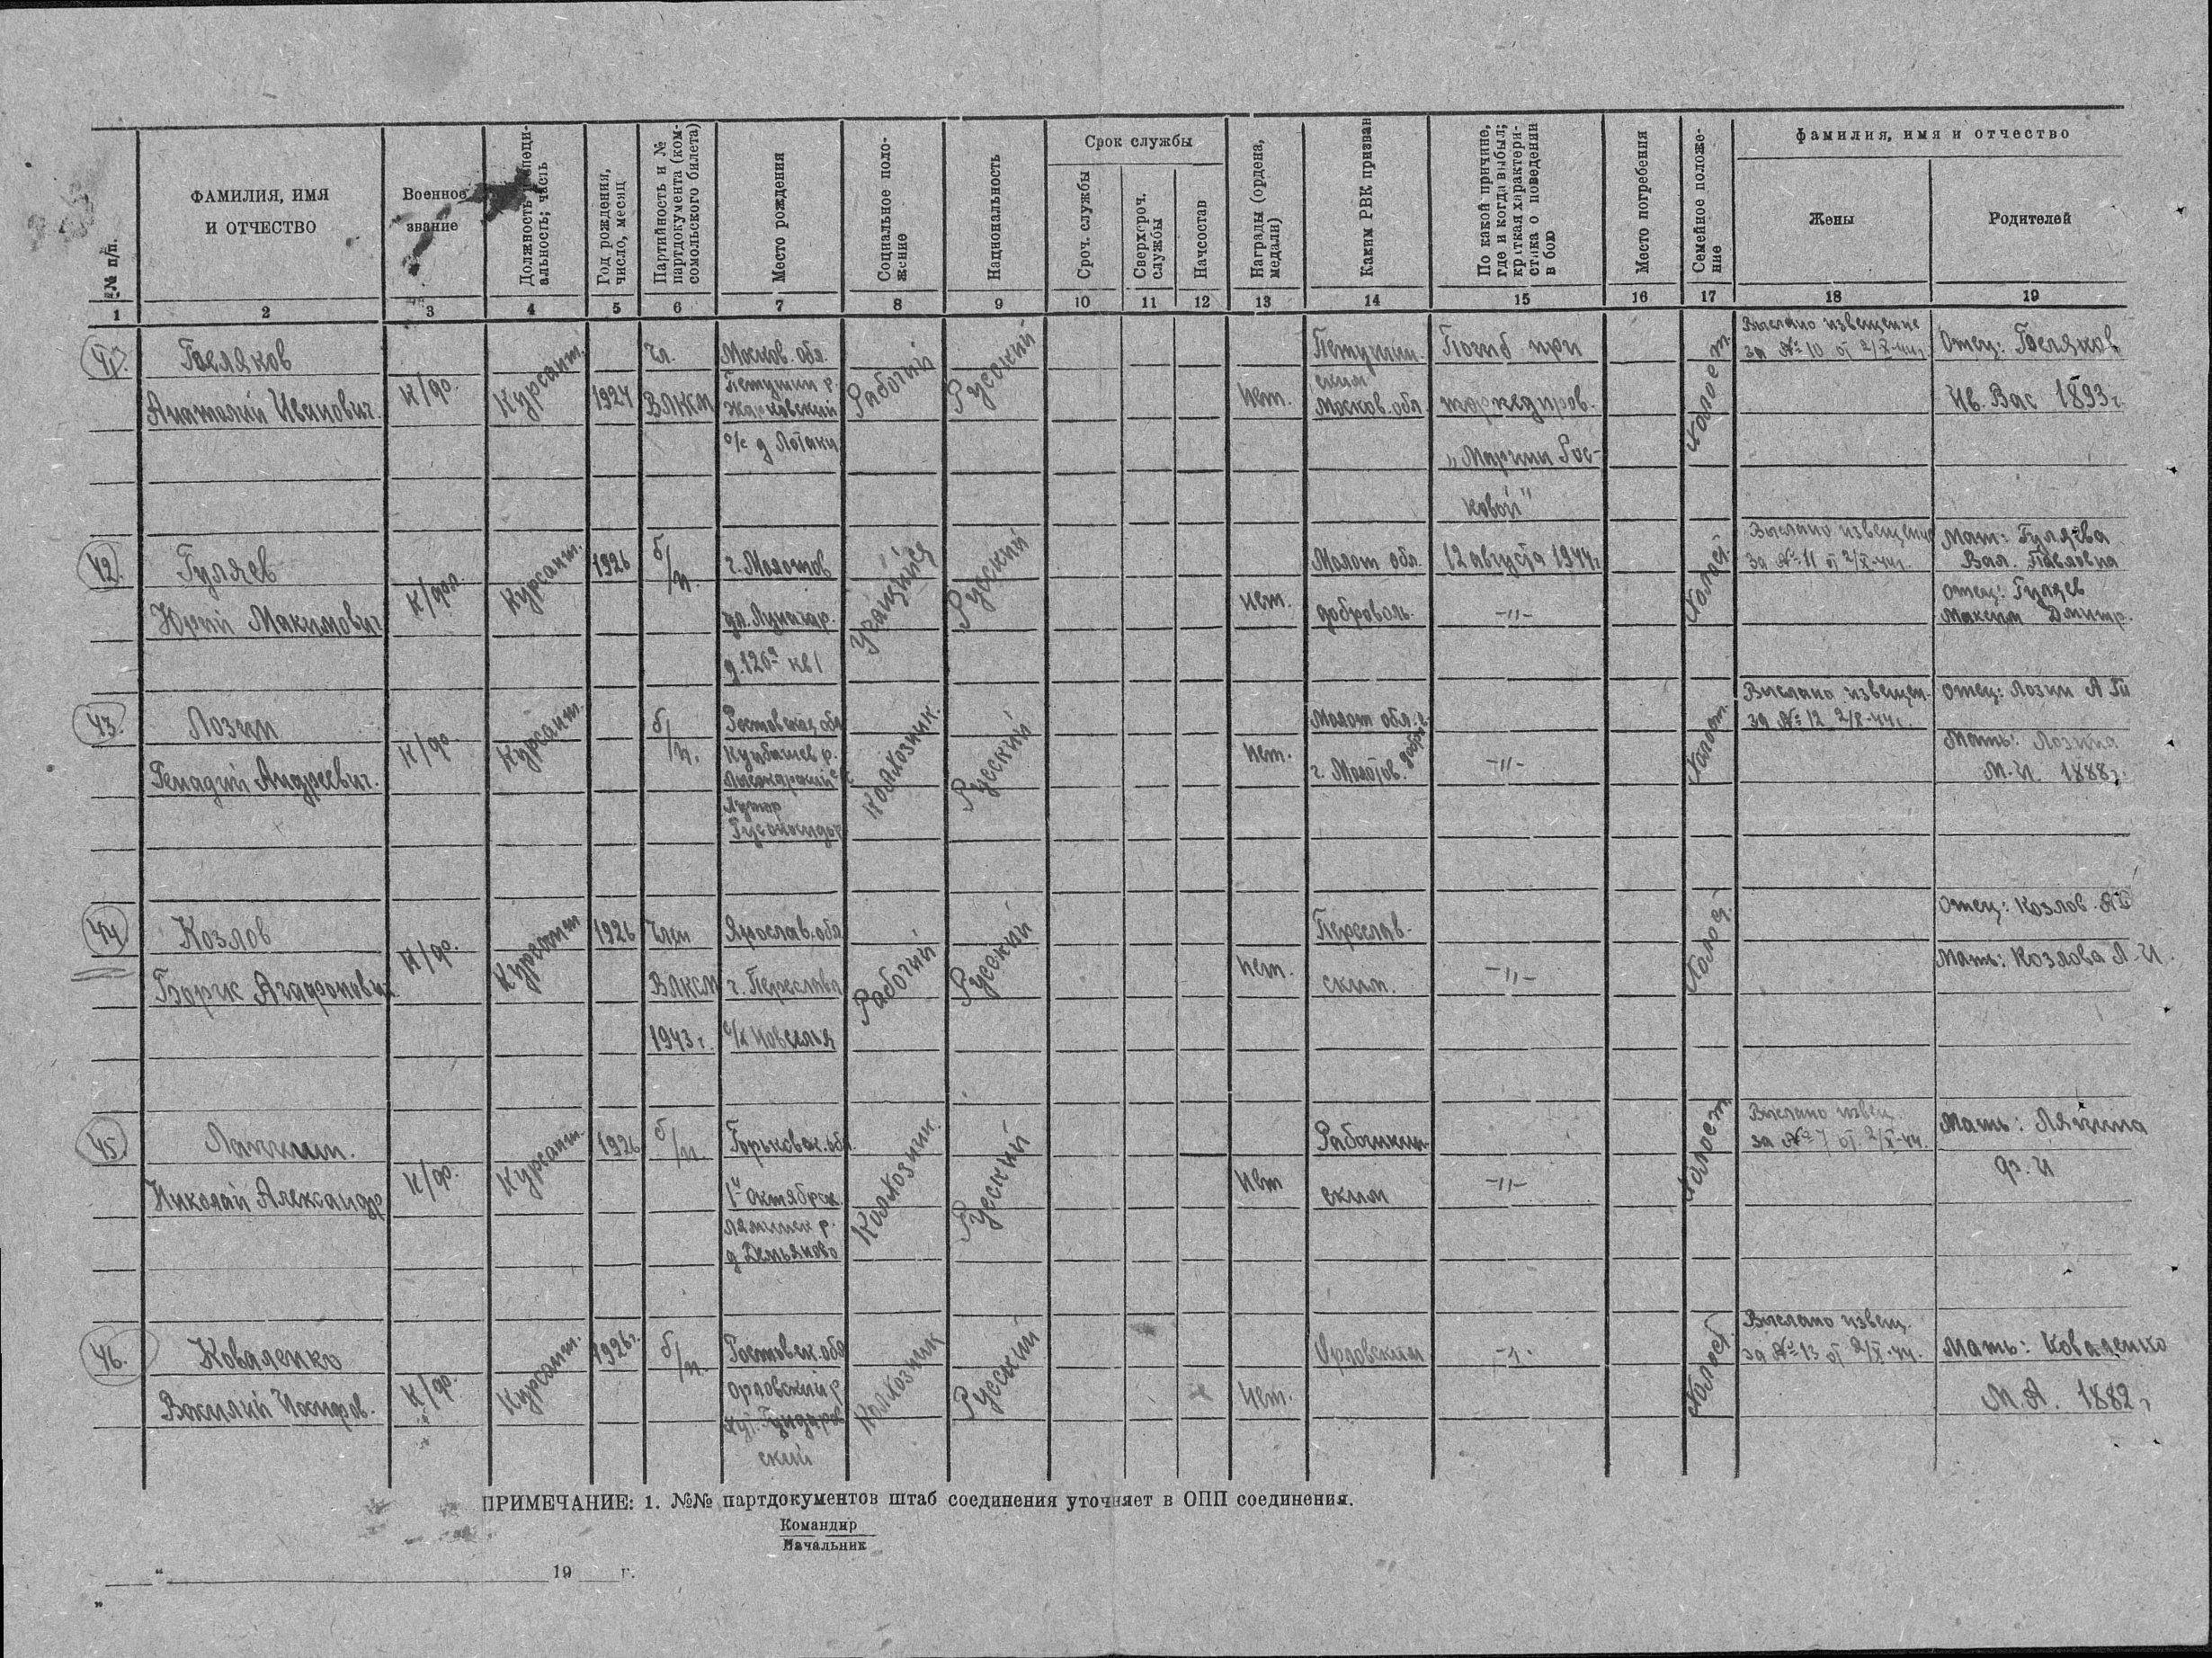 №№ п/п.
ФАМИЛИЯ, ИМЯ
И ОТЧЕСТВО
Военное
звание
Должность специ-
альность; часть
Год рождения,
число, месяц
Партийность и №
партдокумента (ком-
сомольского билета)
Место рождения
Социальное поло-
жение
Национальность
Срок службы
Сроч. службы
Сверхсроч.
службы
Начсостав
Награды (ордена,
медали)
Каким РВК призван
По какой причине,
где и когда выбыл;
краткая характери-
стика о поведении
в бою
Место погребения
Семейное положе-
ние
фамилия, имя и отчество
Жены
Родителей
1 2 3 4 5 6 7 8 9 10 11 12 13 14 15 16 17 18 19
41.
Беляков
Анатолий Иванович.
к/ф.
Курсант.
1924
Чл.
ВЛКСМ
Москов. обл.
Петушин р.
Жарковский
с/с д Лотаки
Рабочий
Русский
нет.
Петушин.
ским
Москов. обл
Погиб при
торпедиров.
„Марины Рос-
ковой"
Холост
Выслано извещение
за № 10 от 2/X-44г.
Отец: Беляков
Ив. Вас 1893г.
42.
Гуляев
Юрий Макимович
к/фл.
Курсант.
1926
б/п.
г. Молотов
ул. Луначар.
д. 120а кв 1
Учащийся
Русский
нет.
Молот обл.
доброволь.
12 августа 1944г
-"-
Холост
Выслано извещение
За № 11 от 2/X-44г.
Мат: Гуляева
Вал. Павловна
отец: Гуляев
Максим Дмитр.
43.
Лозин
Генадий Андреевич.
к/ф.
Курсант.
б/п.
Ростовская обл
Куйбышев р.
Хутор
Колхозник.
Русский
нет.
Молот обл.
г. Молотов.
-"-
Холост.
Выслано извещен.
за № 12 2/X-44г.
отец: Лозин А
Мать: Лозина
М. И. 1888г.
44
Козлов
Борис Агафонович
к/ф.
Курсант
1926
Член
ВЛКСМ
1943 г.
Ярослав. обл
г. Переслава
с/х Новоселья
Рабочий
Русский
нет.
Переслав.
ским.
-"-
Холост
Отец: Козлов
Мать: Козлова А. И.
45.
Лапшин.
Николай Александр
к/ф.
Курсант.
1926
б/п.
Горьковск. обл.
1й Октябрск.
д Демьяново
Колхозник.
Русский
Нет
Работкин-
ским
-"-
Холост
Выслано извещ.
за № 7 от 2/X-44.
Мать: Ляпина
Ф. И
46.
Коваленко
Василий Иосифов.
к/ф.
Курсант.
1926г.
б/п.
Ростовск. обл
Орловский р
хут. Гундоров
ский
Колхозник
Русский
Нет.
Орловским
-"-
Холост
Выслано извещ.
за № 13 от 2/X-44.
Мать: Коваленко
М. А. 1882г
ПРИМЕЧАНИЕ: 1. №№ партдокументов штаб соединения уточняет в ОПП соединения.
Командир
Начальник
" 19 г.